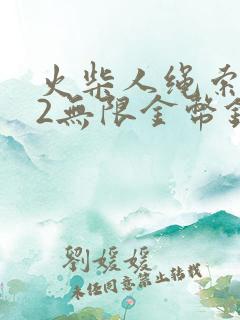 火柴人绳索
2無限金幣鑽
劉媛媛
未经同意禁止转载